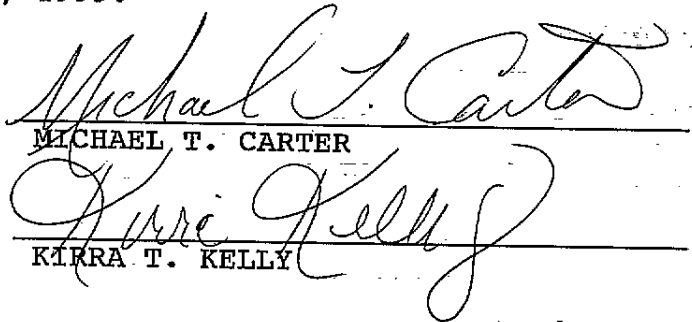 Michael T. Carter
MICHAEL T. CARTER
Kirra Kelly
KIRRA T. KELLY